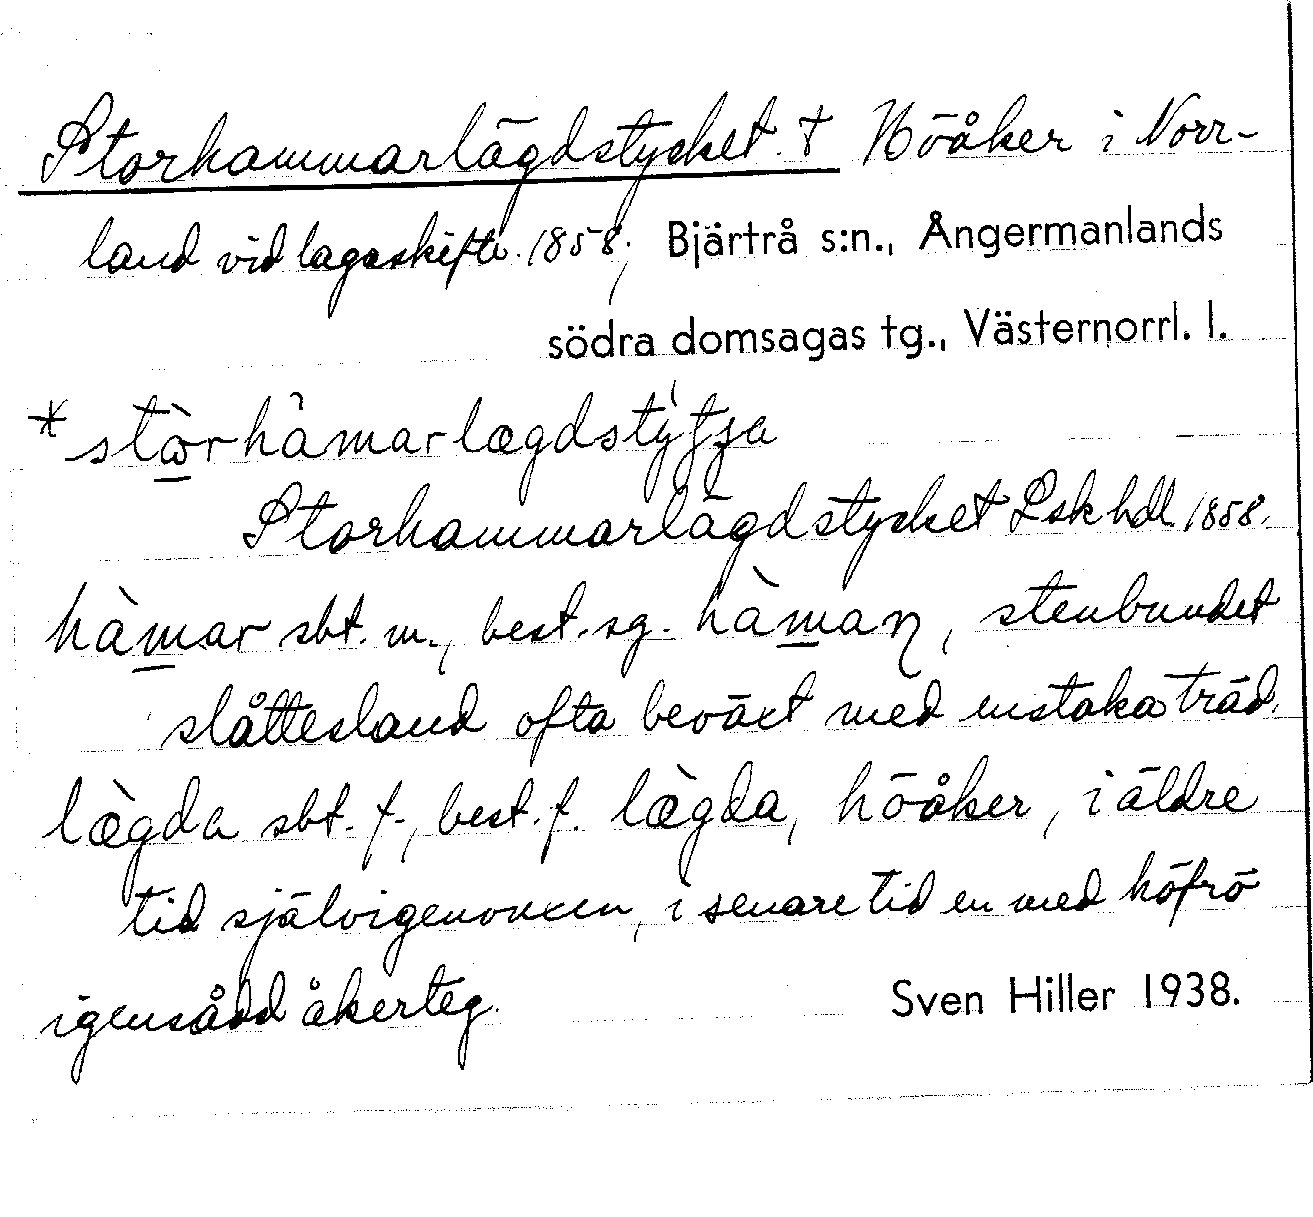 Storhammarlägdstycket † Höåker i Norr-
land vid lagaskifte 1858; Bjärtrå s:n., Ångermanlands
södra domsagas tg., Västernorrl. l.
Storhammarlägdstycket Lsk hdl 1858.
hàmar sbt. m., best. sg. hàmaɳ, stenbundet
slåttesland ofta beväxt med enstaka träd.
lægda sbt. f., best. f. lægda, höåker, i äldre
tid självigenvuxen, i senare tid en med höfrö
igensådd åkerteg.
Sven Hiller 1938.